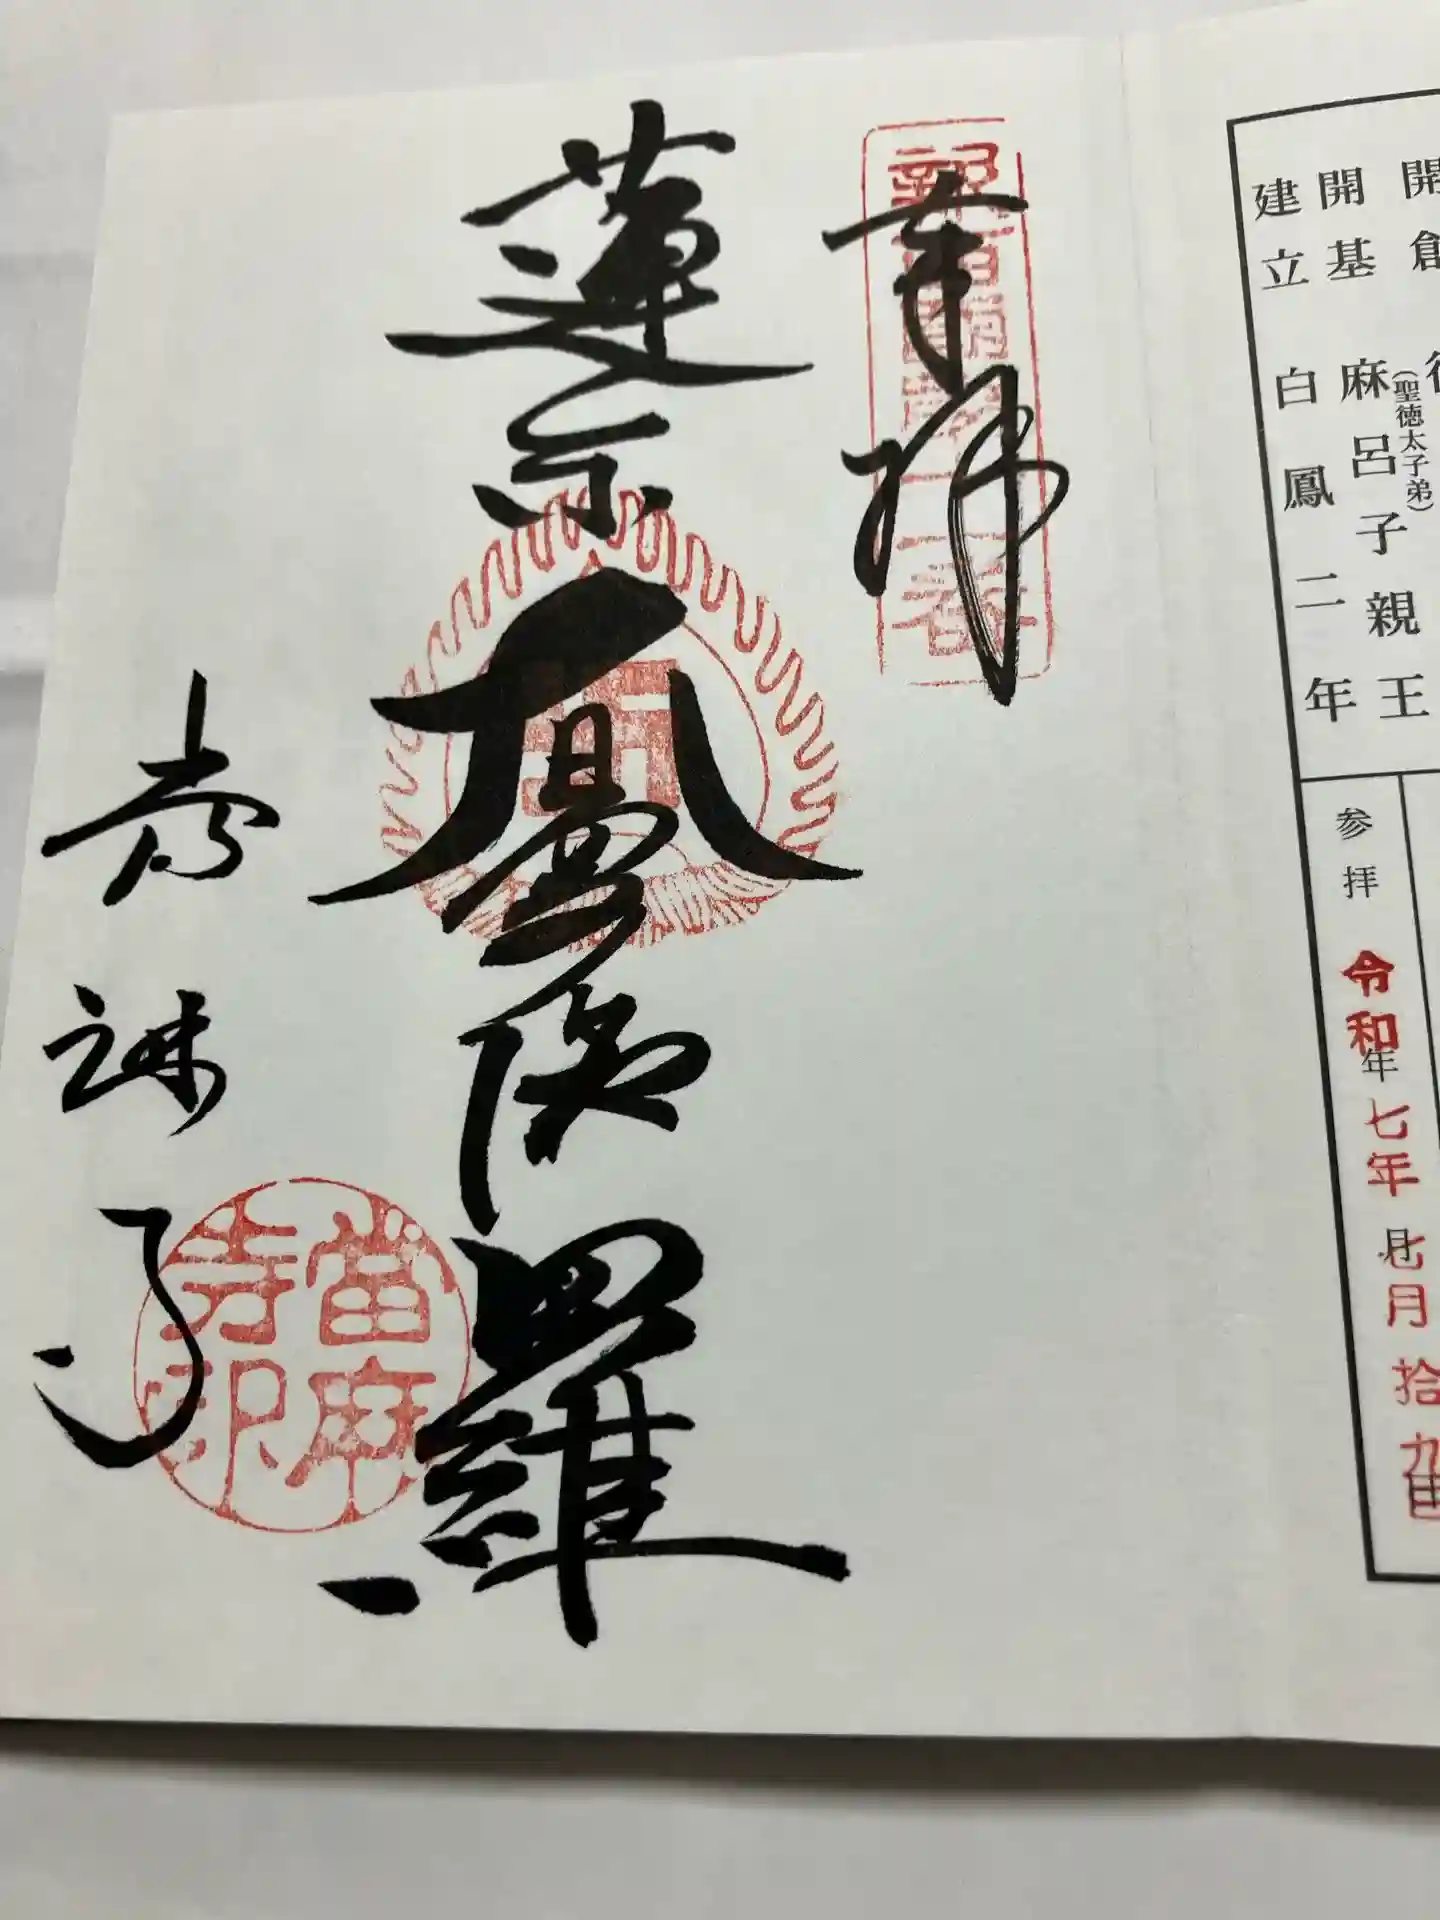 開創
開基 麻呂子親王
(聖徳太子弟)
建立 白鳳二年
参拝 令和七年七月拾九日
奉拝
蓮糸曼陀羅
當麻寺
當麻寺印